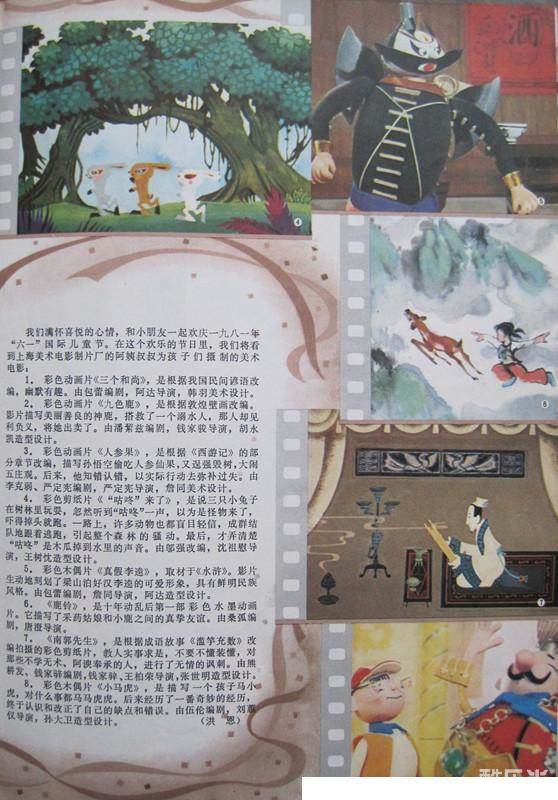 酒
4
5
8
7
我们满怀喜悦的心情，和小朋友一起欢庆一九八一年
“六一”国际儿童节。在这个欢乐的节日里，我们将看
到上海美术电影制片厂的阿姨叔叔为孩子们摄制的美术
电影：
1． 彩色动画片《三个和尚》，是根据我国民间谚语改
编，幽默有趣。由包蕾编剧，阿达导演，韩羽美术设计。
2． 彩色动画片《九色鹿》，是根据敦煌壁画改编。
影片描写美丽善良的神鹿，搭救了一个溺水人，那人却见
利负义，将她出卖了。由潘絜兹编剧，钱家骏导演，胡永
凯造型设计。
3． 彩色动画片《人参果》，是根据《西游记》的部
分章节改编，描写孙悟空偷吃人参仙果，又逞强毁树，大闹
五庄观。后来，他知错认错，以实际行动去弥补过失。由
李克弱、严定宪编剧，严定宪导演，詹同美术设计。
4． 彩色剪纸片《“咕咚”来了》，是说三只小兔子
在树林里玩耍，忽然听到“咕咚”一声，以为是怪物来了，
吓得掉头就跑。一路上，许多动物也都盲目轻信，成群结
队地跟着逃跑，引起整个森林的骚动。最后，才弄清楚
“咕咚”是木瓜掉到水里的声音。由邬强改编，沈祖慰导
演，王树忱造型设计。
5． 彩色木偶片《真假李逵》，取材于《水浒》。影片
生动地刻划了梁山泊好汉李逵的可爱形象，具有鲜明民族
风格。由包蕾编剧，詹同导演，阿达造型设计。
6． 《鹿铃》，是十年动乱后第一部彩色水墨动画
片。它描写了采药姑娘和小鹿之间的真挚友谊。由桑弧编
剧，唐澄导演。
7． 《南郭先生》，是根据成语故事《滥竽充数》改
编拍摄的彩色剪纸片，教人实事求是，不要不懂装懂，对
那些不学无术、阿谀奉承的人，进行了无情的讽刺。由熊
耕发、钱家骍编剧，钱家骍、王柏荣导演，张世明造型设计。
8． 彩色木偶片《小马虎》，是描写一个孩子马小
虎，对什么事都马马虎虎。后来经历了一番奇妙的经历，
终于认识和改正了自己的缺点和错误。由伍伦编剧，刘蕙
仪导演，孙大卫造型设计。 （洪 恩）